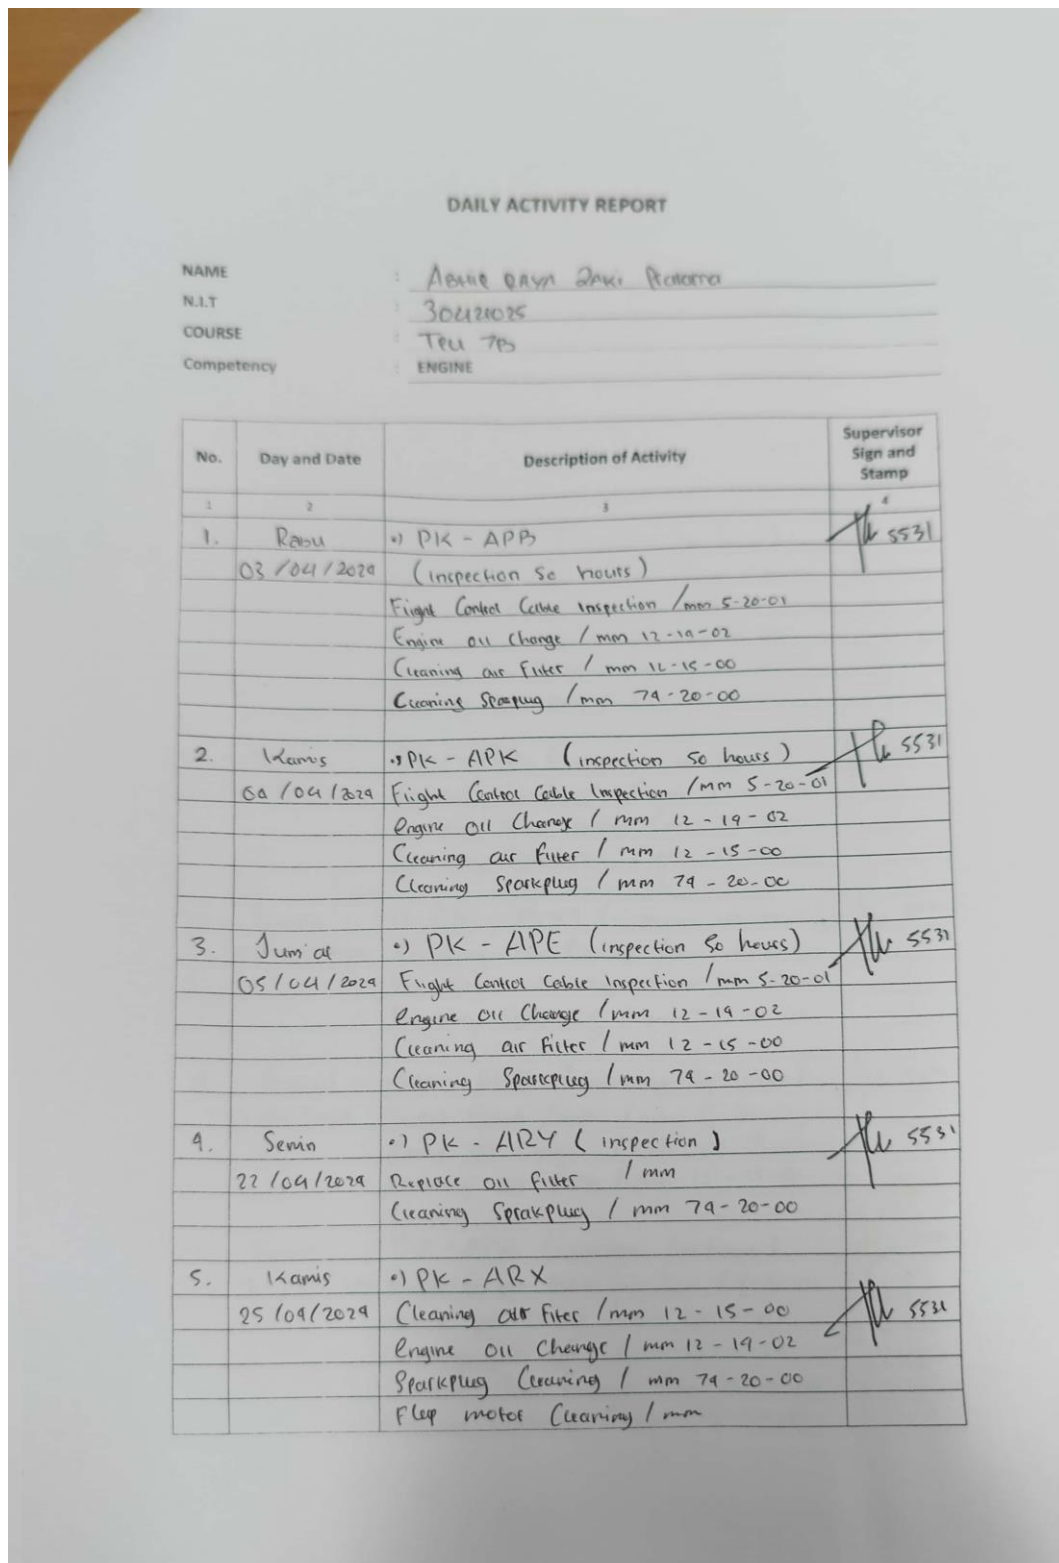 DAILY ACTIVITY REPORT
NAME : Pratama
N.I.T : 30421025
COURSE : TPU 7B
Competency : ENGINE
No. Day and Date Description of Activity Supervisor Sign and Stamp
1 2 3 4
1. Rabu •) PK - APB 5531
03/04/2024 (inspection 50 hours)
Flight Control Cable inspection / mm 5-20-01
Engine oil Change / mm 12-19-02
Cleaning air Filter / mm 12-15-00
Cleaning Sparplug / mm 74-20-00
2. Kamis •) PK - APK (inspection 50 hours) 5531
04/04/2024 Flight Control Cable inspection / mm 5-20-01
engine oil Change / mm 12-19-02
Cleaning air filter / mm 12-15-00
Cleaning Sparkplug / mm 74-20-00
3. Jum'at •) PK - APE (inspection 50 hours) 5531
05/04/2024 Flight Control Cable inspection / mm 5-20-01
engine oil Change / mm 12-19-02
Cleaning air filter / mm 12-15-00
Cleaning Sparkplug / mm 74-20-00
4. Senin •) PK - ARY (inspection) 5531
22/04/2024 Replace oil filter / mm
Cleaning Sprakplug / mm 74-20-00
5. Kamis •) PK - ARX
25/04/2024 Cleaning air fiter / mm 12-15-00 5531
engine oil Change / mm 12-19-02
Sparkplug Cleaning / mm 74-20-00
Flap motor Cleaning / mm